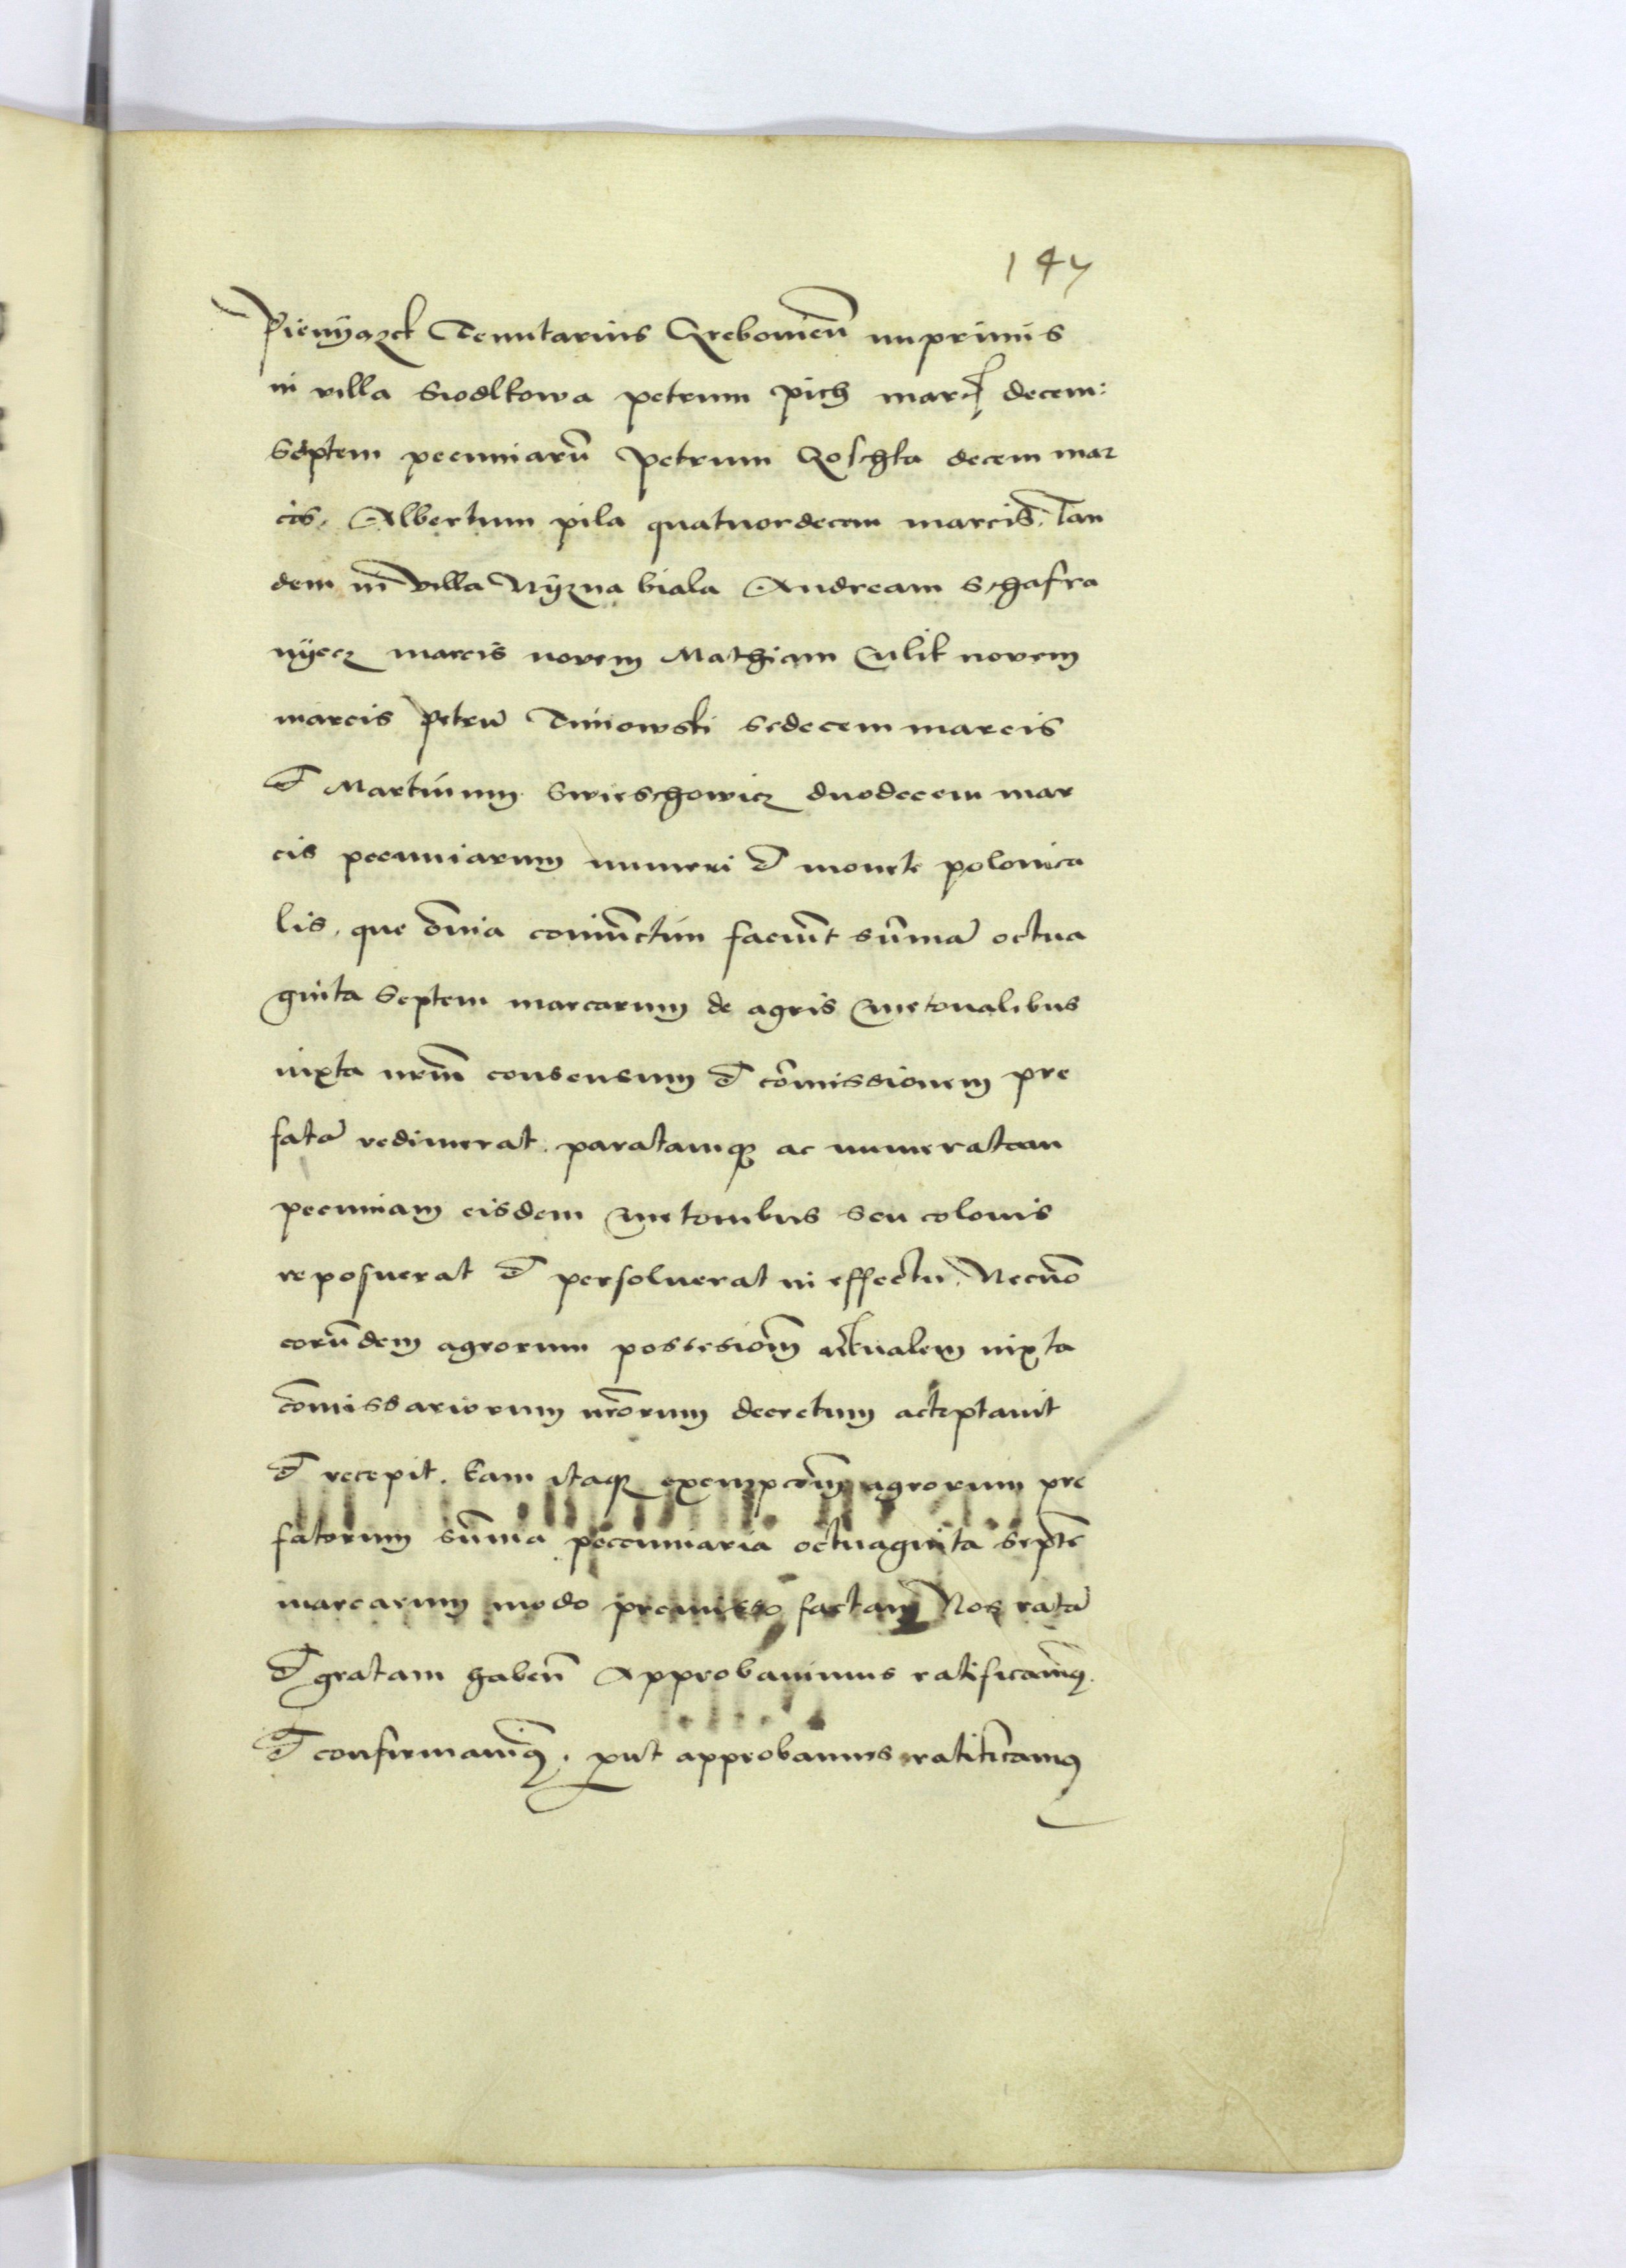 147
Pienÿązek Tenutarius Grebouieñ inprimis
in villa Siodlkowa petrum pich marcis decem:
septem pecuniarũ petrum Koschka decem mar
cis, Albertum pila quatuordecem marcis, Tan
dem in villa Nÿzna biala Andream Schafra
nÿecz marcis novem Mathiam Culik novem
marcis Petrũ Tuiowski sedecem marcis
et Martinum Swieschowicz duodecem mar
cis pecuniarum numeri et monete polonica
lis, que õmia coniũctim faciũt sũmã octua
ginta septem marcarum de agris Cmetonalibus
iuxta nr̃m consensum et cõmissionem pre
fatã redimerat. paratamqȝ ac numeratam
pecuniam eisdem Cmetonibus seu colonis
reposuerat et persoluerat in effectu. Necnõ
eorũdem agrorum possesiom̃ actualem iuxta
com̃issariorum nr̃orum decretum acceptauit
et recepit. Eam itaqȝ exempcom̃ agrorum pre
fatorum sum̃a peccuniaria octuaginta septẽ
marcarum modo premisso factam Nos ratã
et gratam habeñ Approbauimus ratificauimꝰ
et confirmauimꝰ. put approbamus ratificamꝰ